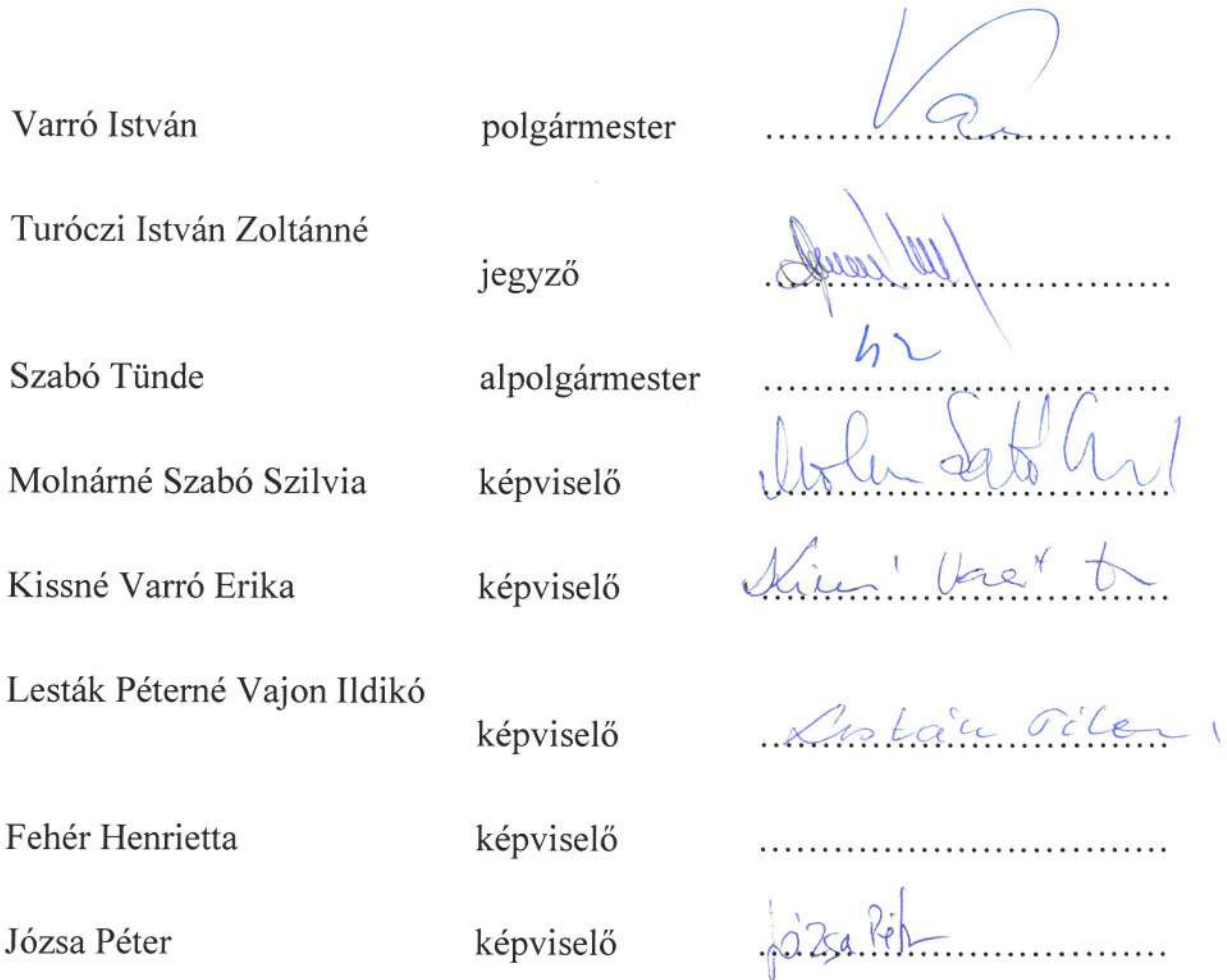 Varró István polgármester ................................
Turóczi István Zoltánné
jegyző ................................
Szabó Tünde alpolgármester ................................
Molnárné Szabó Szilvia képviselő ................................
Kissné Varró Erika képviselő ................................
Lesták Péterné Vajon Ildikó
képviselő ................................
Fehér Henrietta képviselő ................................
Józsa Péter képviselő Józsa Pét